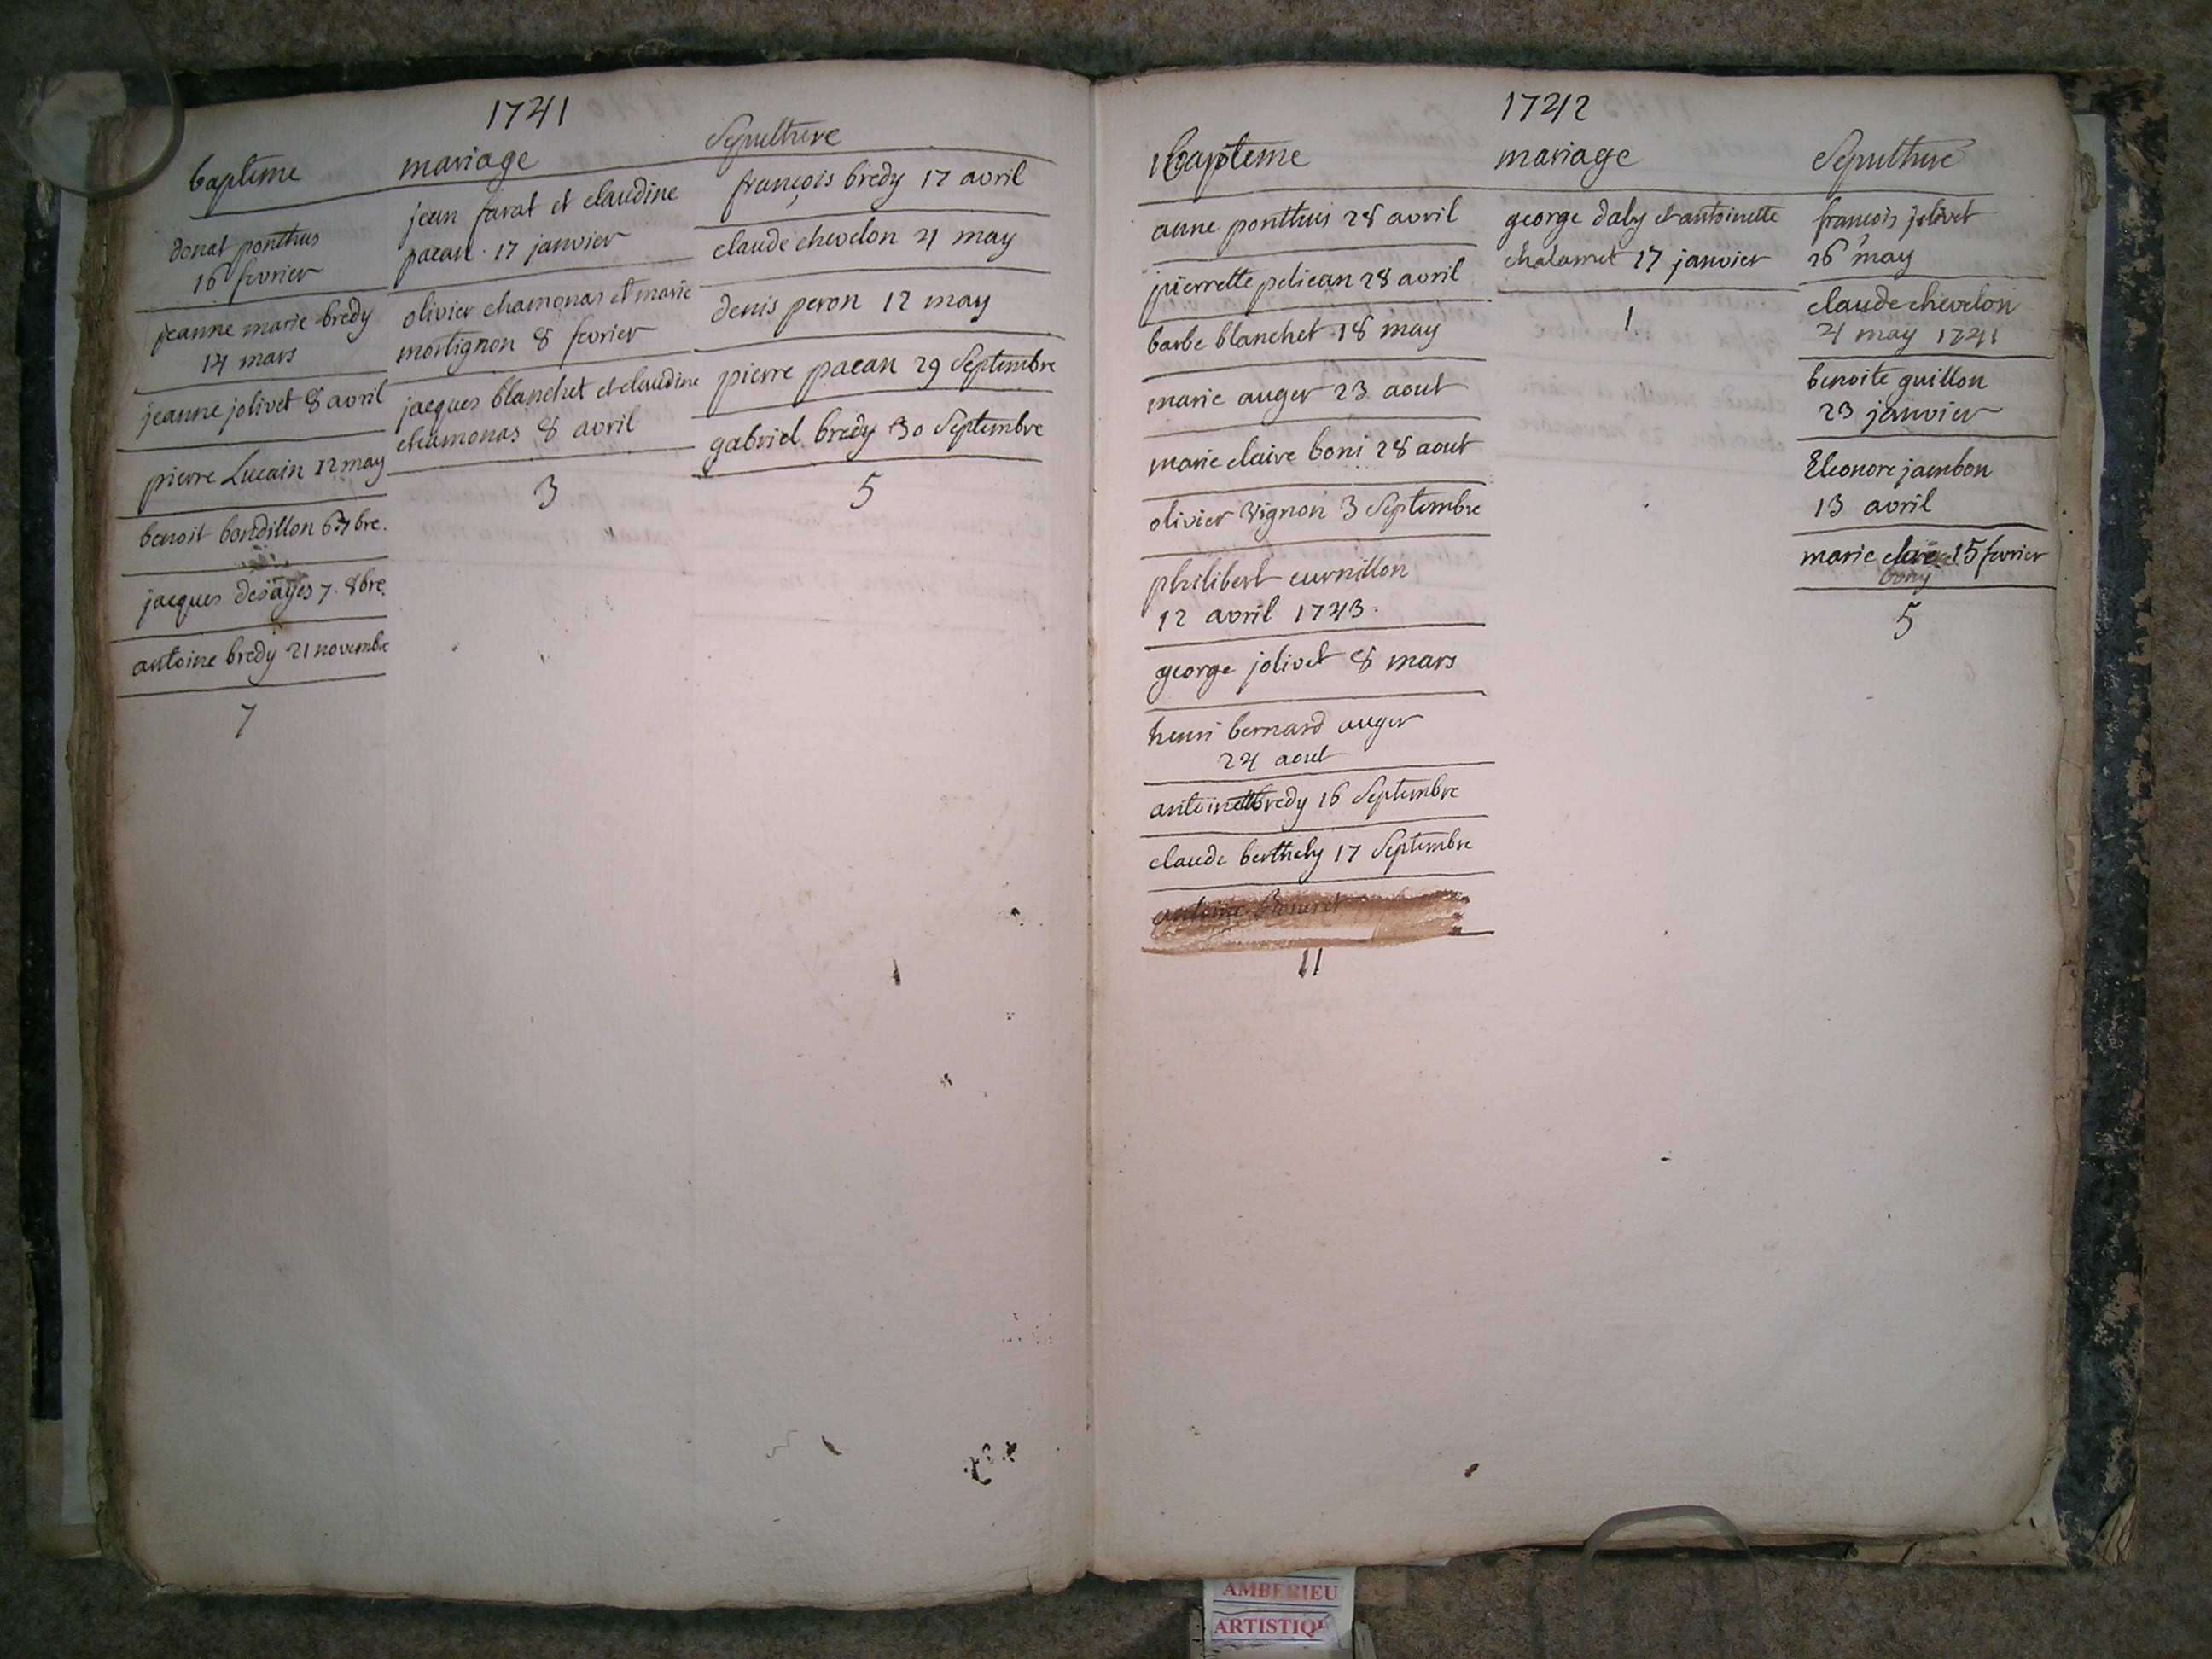 1741
bapteme
donat ponthus
16 fevrier
jeanne marie bredy
14 mars
jeanne jolivet 8 avril
pierre Lucain 12 may
benoit bondillon 7bre.
jacques desayes 7. 8bre.
antoine bredy 21 novembre
7
mariage
jean favat et claudine
pacan. 17 janvier
olivier chamonas et marie
mortignon 8 fevrier
jacques blanchet et claudine
chamonas 8 avril
3
Sepulture
françois bredy 17 avril
claude chevelon 4 may
denis peron 12 may
pierre pacan 29 Septembre
gabriel bredy 30 Septembre
5
1742
Bapteme
anne ponthus 28 avril
pierrette pelican 28 avril
barbe blanchet 18 may
marie auger 23 aout
marie claire boni 28 aout
olivier vignon 3 Septembre
philibert curnillon
12 avril 1743.
george jolivet 8 mars
henri bernard auger
24 aout
antoinette bredy 16 Septembre
claude berthely 17 Septembre
antoine
11
mariage
george daly et antoinette
chalamet 17 janvier
1
Sepulture
françois jolivet
26 may
claude chevelon
4 may 1741
benoite guillon
23 janvier
Eleonore jambon
13 avril
marie claire 15 fevrier
bony
5
AMBERIEU
ARTISTIQUE